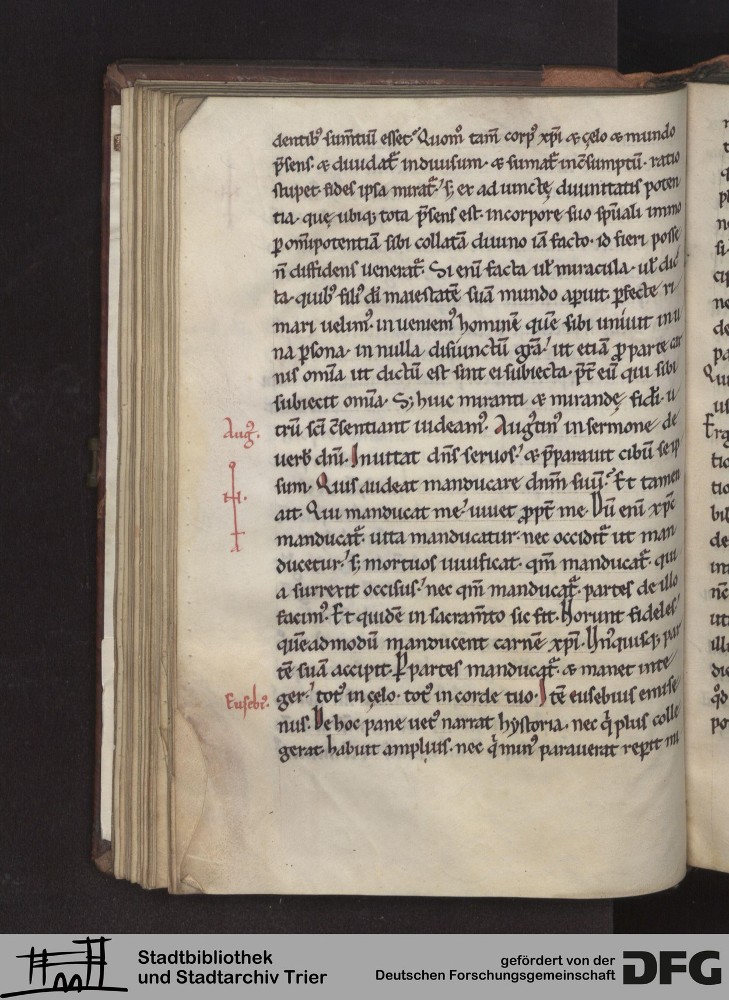 dentib9 sumtiu esset. Quom tam corp9 xpi & cęlo & mundo
psens & diuidat indiuisum. & sumat inсsumptu. ratio
stupet. fides ipsa mirat. s; ex ad iunctę diuinitatis poten
tia. quę ubiq; tota psens est. incorpore suo spuali immo
p omipotentia sibi collata diuino ia facto. id fieri posse
n diffidens uenerat. Si eni facta ul miracula. ul dic
ta. quib9 fili9 di maiestate sua mundo apuit. pfecte ri
mari uelim9. in ueniem9 homine que sibi uniuit in u
na psona. in nulla disiunctu gra. ut etia p parte car
nis omia ut dictu est sint ei subiecta. pt eu qui sibi
subiecit omia. S; huic miranti & mirandę fidi. u
tru sci csentiant uideam9. Augtin9 in sermone de
uerb dni. Inuitat dns seruos. & pparauit cibu se ip
sum. Quis audeat manducare dnm suu. Et tamen
ait. Qui manducat me. uiuet ppt me. Du eni xpc
manducat. uita manducatur. nec occidit ut man
ducetur. s; mortuos uiuificat. qm manducat. qui
a surrexit occisus. nec qm manducat. partes de illo
facim9. Et quide in sacramto sic fit. Norunt fideles
queadmodu manducent carne xpi. Vnquisq; par
te sua accipit. P partes manducat. & manet inte
ger. tot9 in cęlo. tot9 in corde tuo. Ite eusebius emise
nus. De hoc pane uet9 narrat hystoria. nec q plus colle
gerat habuit amplius. nec q min9 parauerat repit mi
Aug9.
Euseb9.
Stadtbibliothek
und Stadtarchiv Trier
gefördert von der
Deutschen Forschungsgemeinschaft
DFG